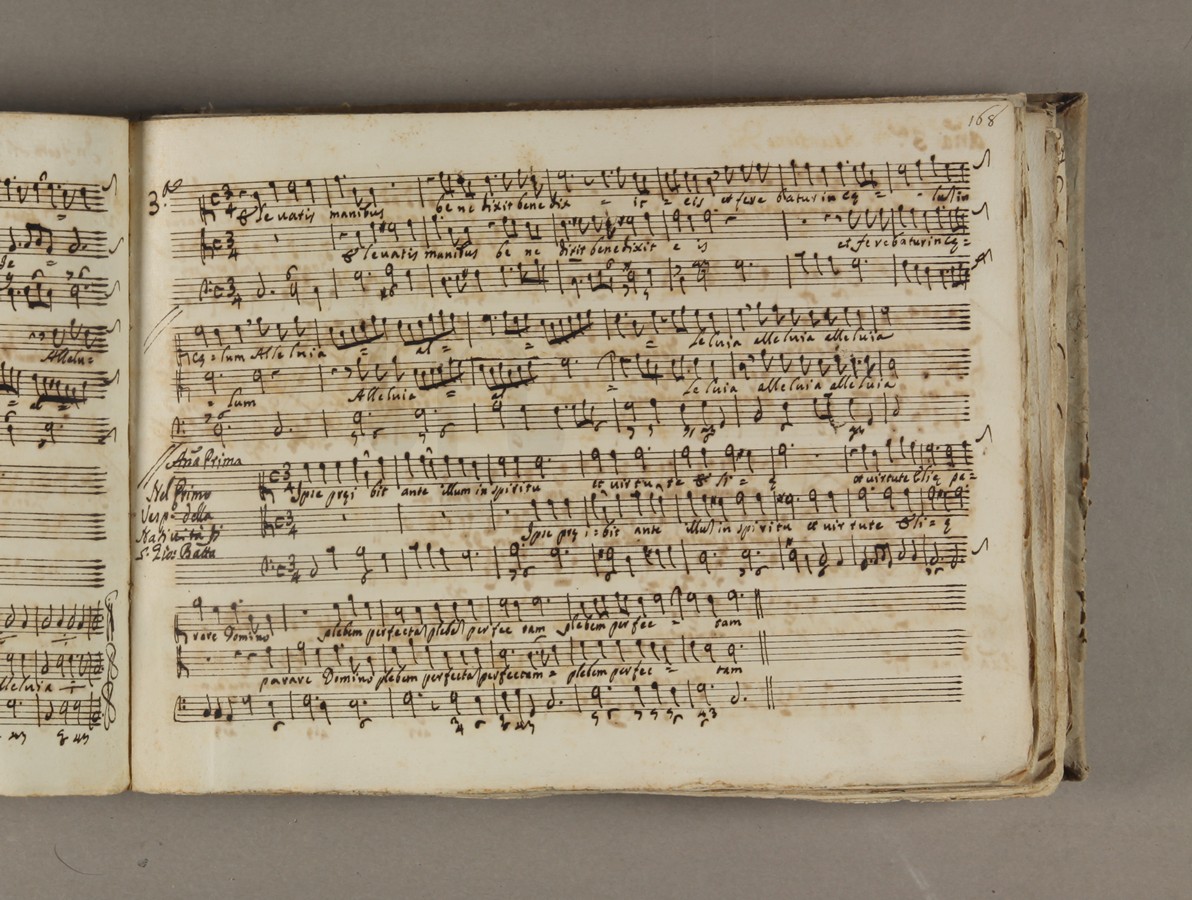 168
3.a
Elevatis manibus benedixit benedix = it = eis et ferebatur in cę = = lu in
Elevatis manibus be ne dixit benedixit e is et ferebatur in cę =
cę = lum Alleluia = al = = = leluia alleluia alleluia
= lum Alleluia = al = leluia alleluia alleluia
Ana Prima
Nel Primo
Vesp. della
Natività di
S. Gio: Batta
Ipse pręi bit ante illum in spiritu et virtute Eli = ę et virtute Elię pa =
Ipse prę i = bit ante illu in spiritu et virtute Eli = ę
rare Domino plebem perfecta plebe perfec tam plebem perfec = tam
parare Domino plebem perfecta perfectam = plebem perfec = tam
Allelu =
lleluia